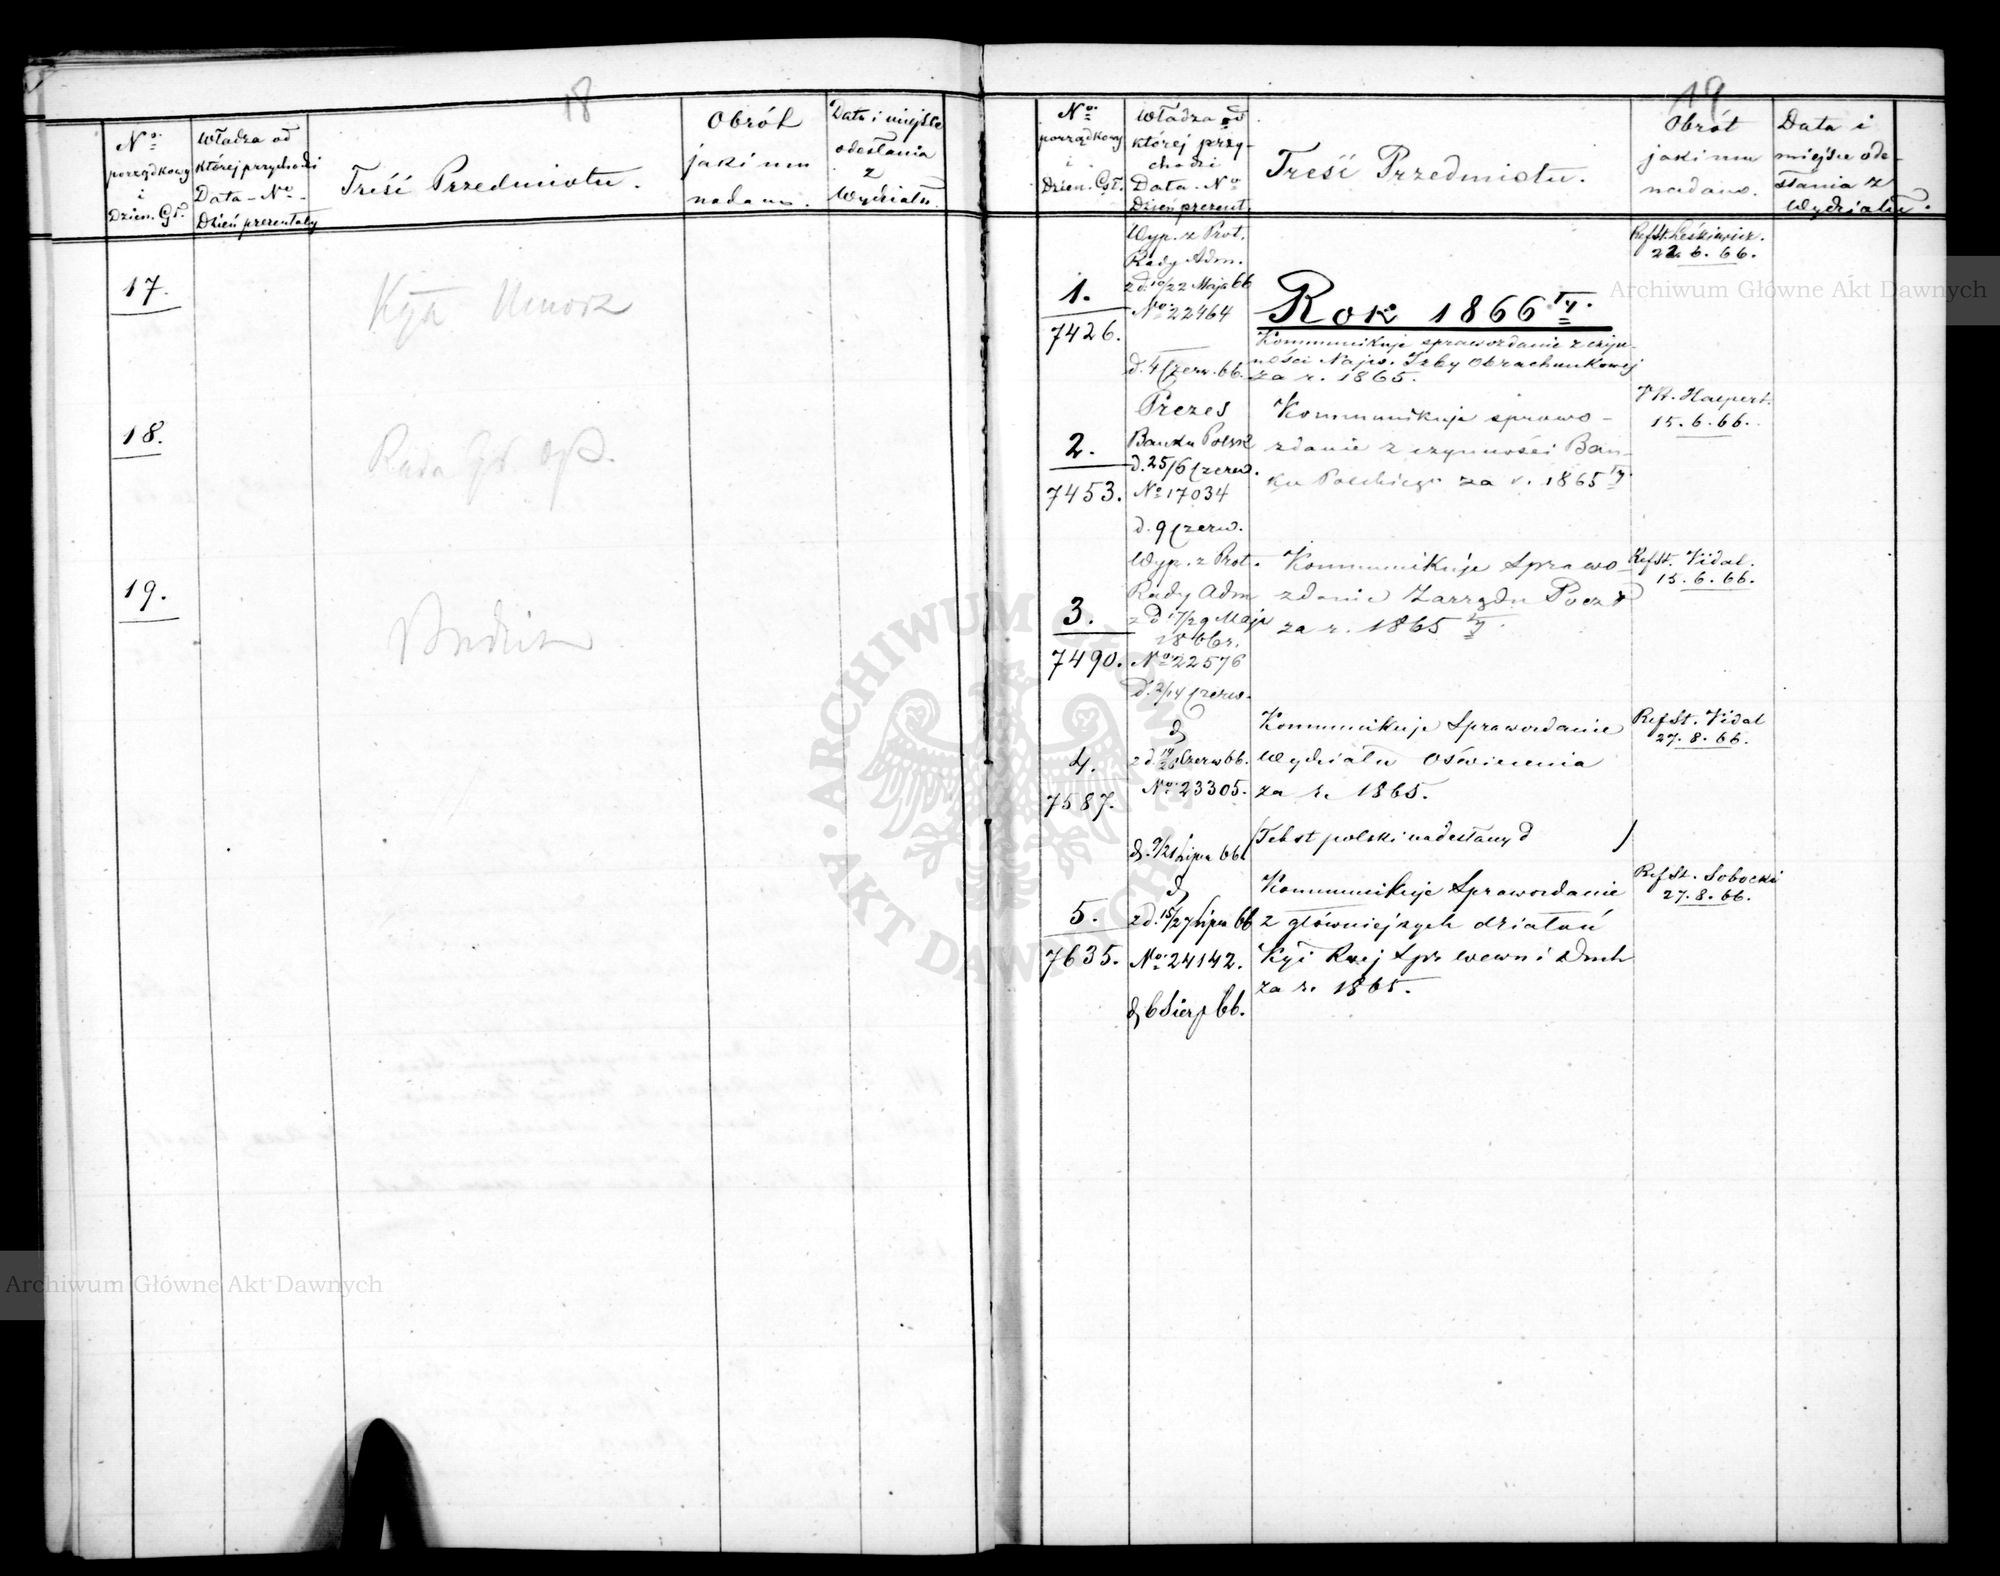 18
No
porządkowy
i
Dzien. Gł.
Władza od
której przychodzi
Data - No -
Dzień prezentaty
Treść Przedmiotu.
Obrót
jaki mu
nadano.
Data i miejsce
odesłania
z
Wydziału.
17.
Kyja Umorz
18.
Rada Gł. Op.
19.
19
No
porządkowy
i
Dzien. Gł.
Władza od
której przy-
chodzi
Data - No
Dzień prezent.
Treść Przedmiotu.
Obrót
jaki mu
nadano.
Data i
miejsce ode-
słania z
Wydziału.
1.
7426.
Wyp. z Prot.
Rady Adm.
z d. 10/22 Maja 66
No 22464
d. 4 Czerw. 66.
Rok 1866 ty.
Kommunikuje sprawozdanie z czyn-
ności Najw. Izby Obrachunkowej
za r. 1865.
Ref St. Leśkiewicz.
22. 6. 66.
2.
7453.
Prezes
Banku Polsk
d. 25/6 Czerw.
No 17034
d. 9 Czerw.
Kommunikuje sprawo-
zdanie z czynności Ban-
ku Polskiego za r. 1865 ty.
Halpert.
15. 6. 66.
3.
7490.
Wyp. z Prot.
Rady Adm
z d 17/29 Maja
1866 r.
No 22576
d. 2/14 Czerw.
Kommunikuje Sprawo
zdanie Zarządu Poczt
za r. 1865 ty.
Ref St. Vidal.
15. 6. 66.
4.
7587.
d
z d. 14/26 Czerw 66.
No 23305.
d. 9/21 Lipca 66
Kommunikuje Sprawozdanie
Wydziału Oświecenia
za r. 1865.
(Tekst polski nadesłany d )
Ref St. Vidal
27. 8. 66.
5.
7635.
d
z d. 15/27 Lipca 66
No 24142.
d 6 Sierp 66.
Kommunikuje Sprawozdanie
z główniejszych działań
Kyi Rzej Spr wewn i Duch
za r. 1865.
Ref St. Sobocki
27. 8. 66.
Archiwum Główne Akt Dawnych
Archiwum Główne Akt Dawnych
ARCHIWUM GŁÓWNE AKT DAWNYCH